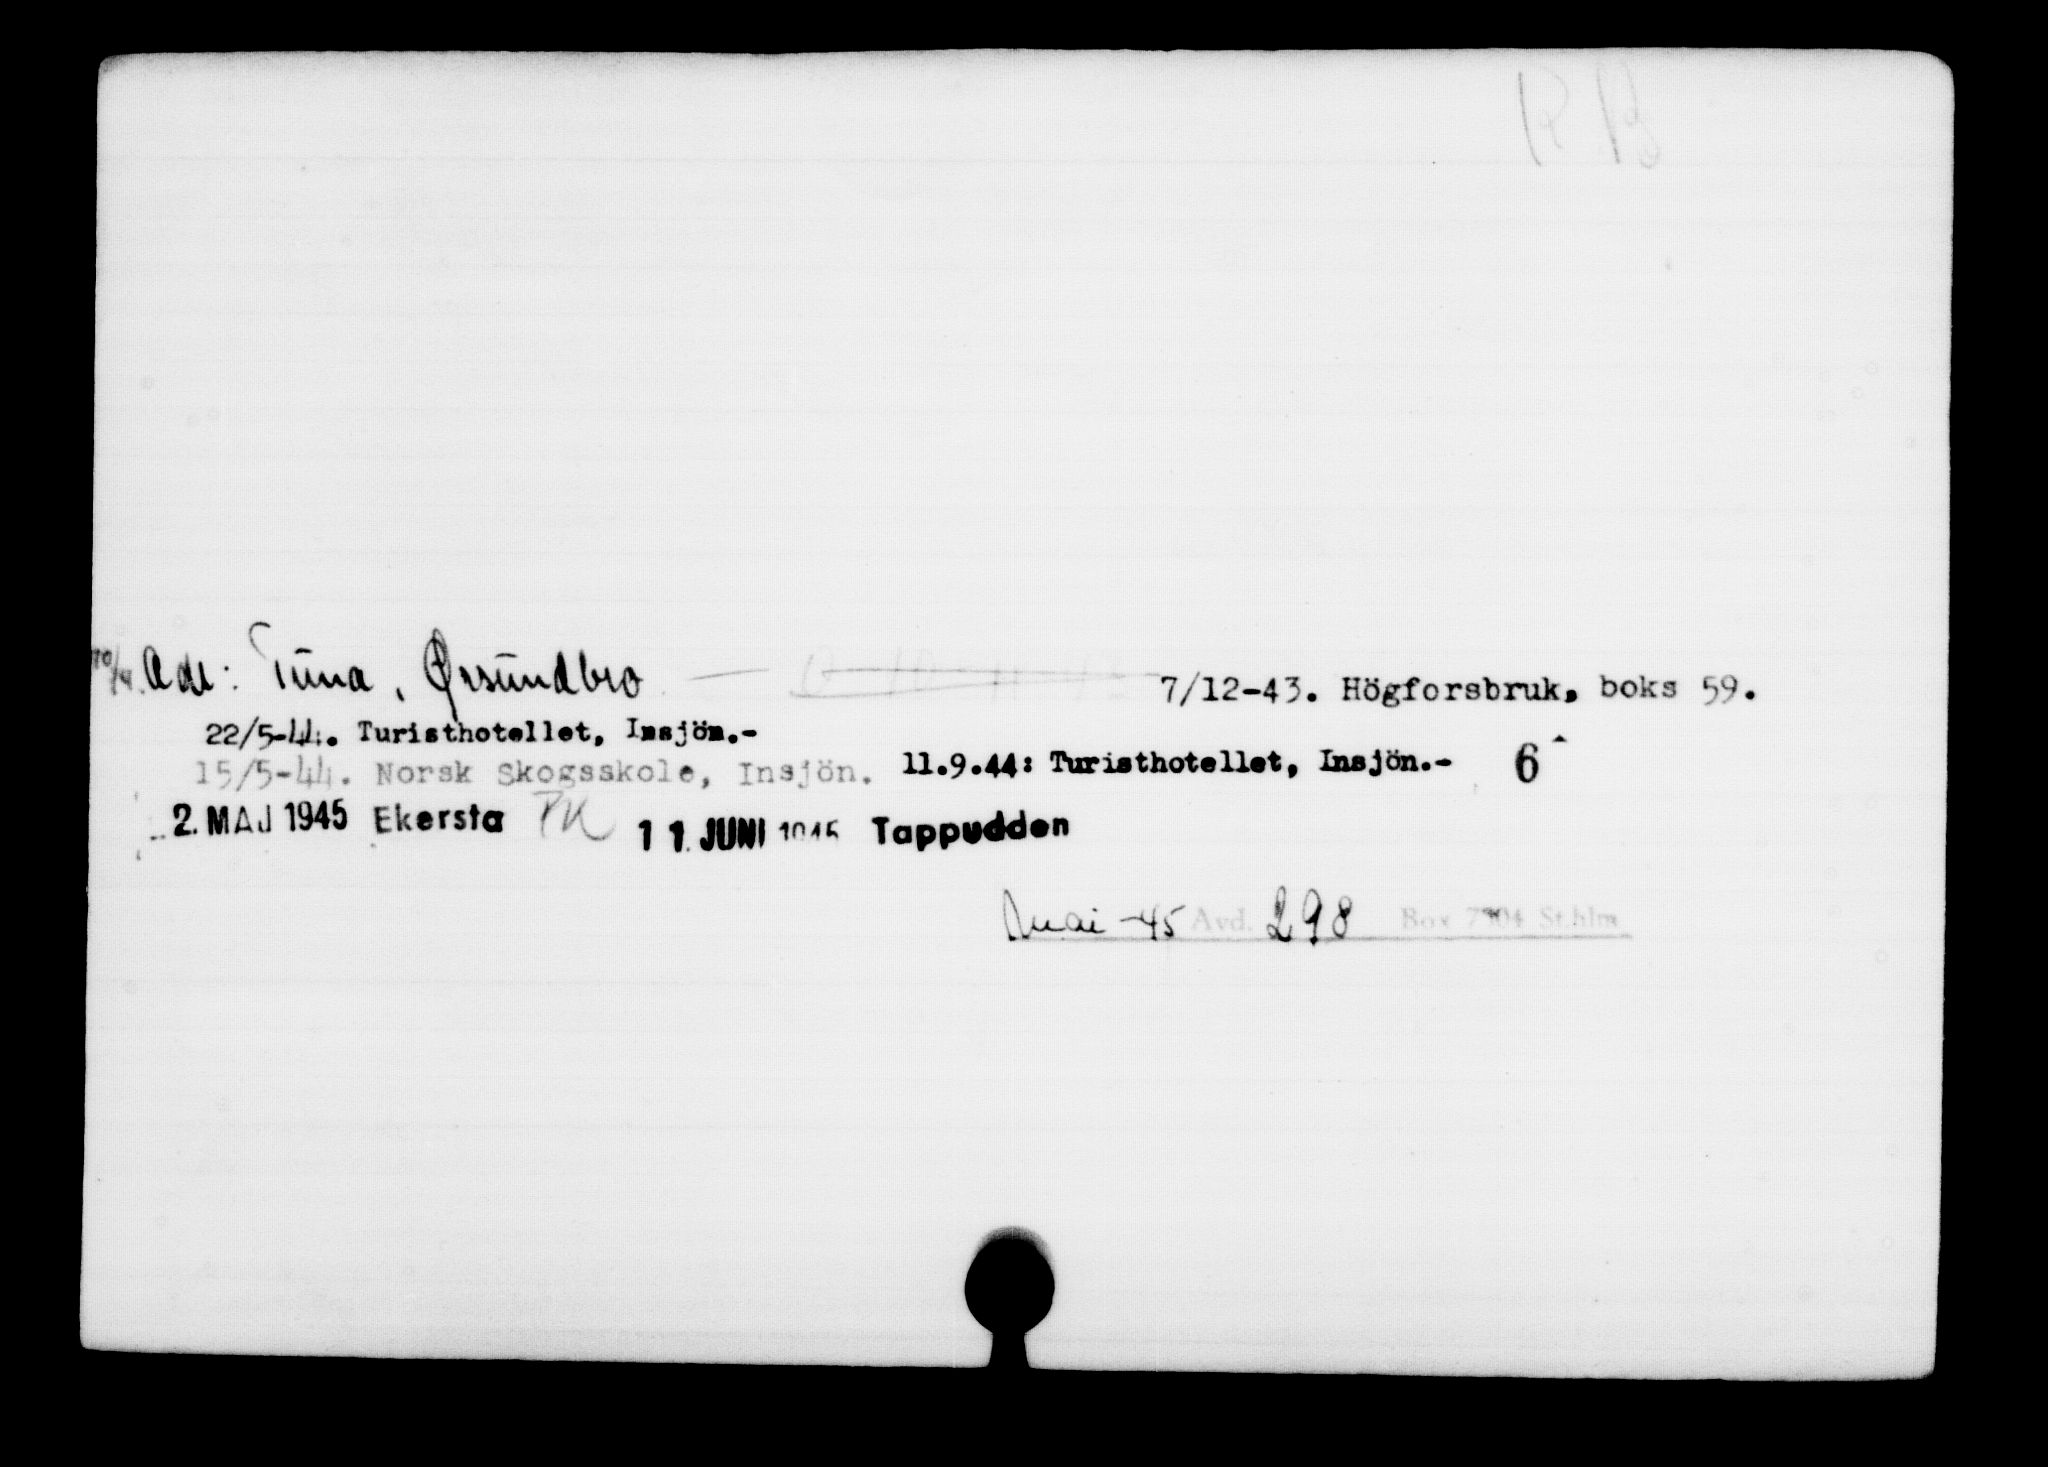 Adr: Tuna, Ørsundbro 7/12-43. Högforsbruk, boks 59.
22/5-44. Turisthotellet, Insjön.-
15/5-44. Norsk Skogsskole, Insjön. 11.9.44: Turisthotellet, Insjön.- 6
2. MAJ 1945 Ekersta 11. JUNI 1945 Tappudden
Mai -45 Avd. 298 Box 7404 St.hlm